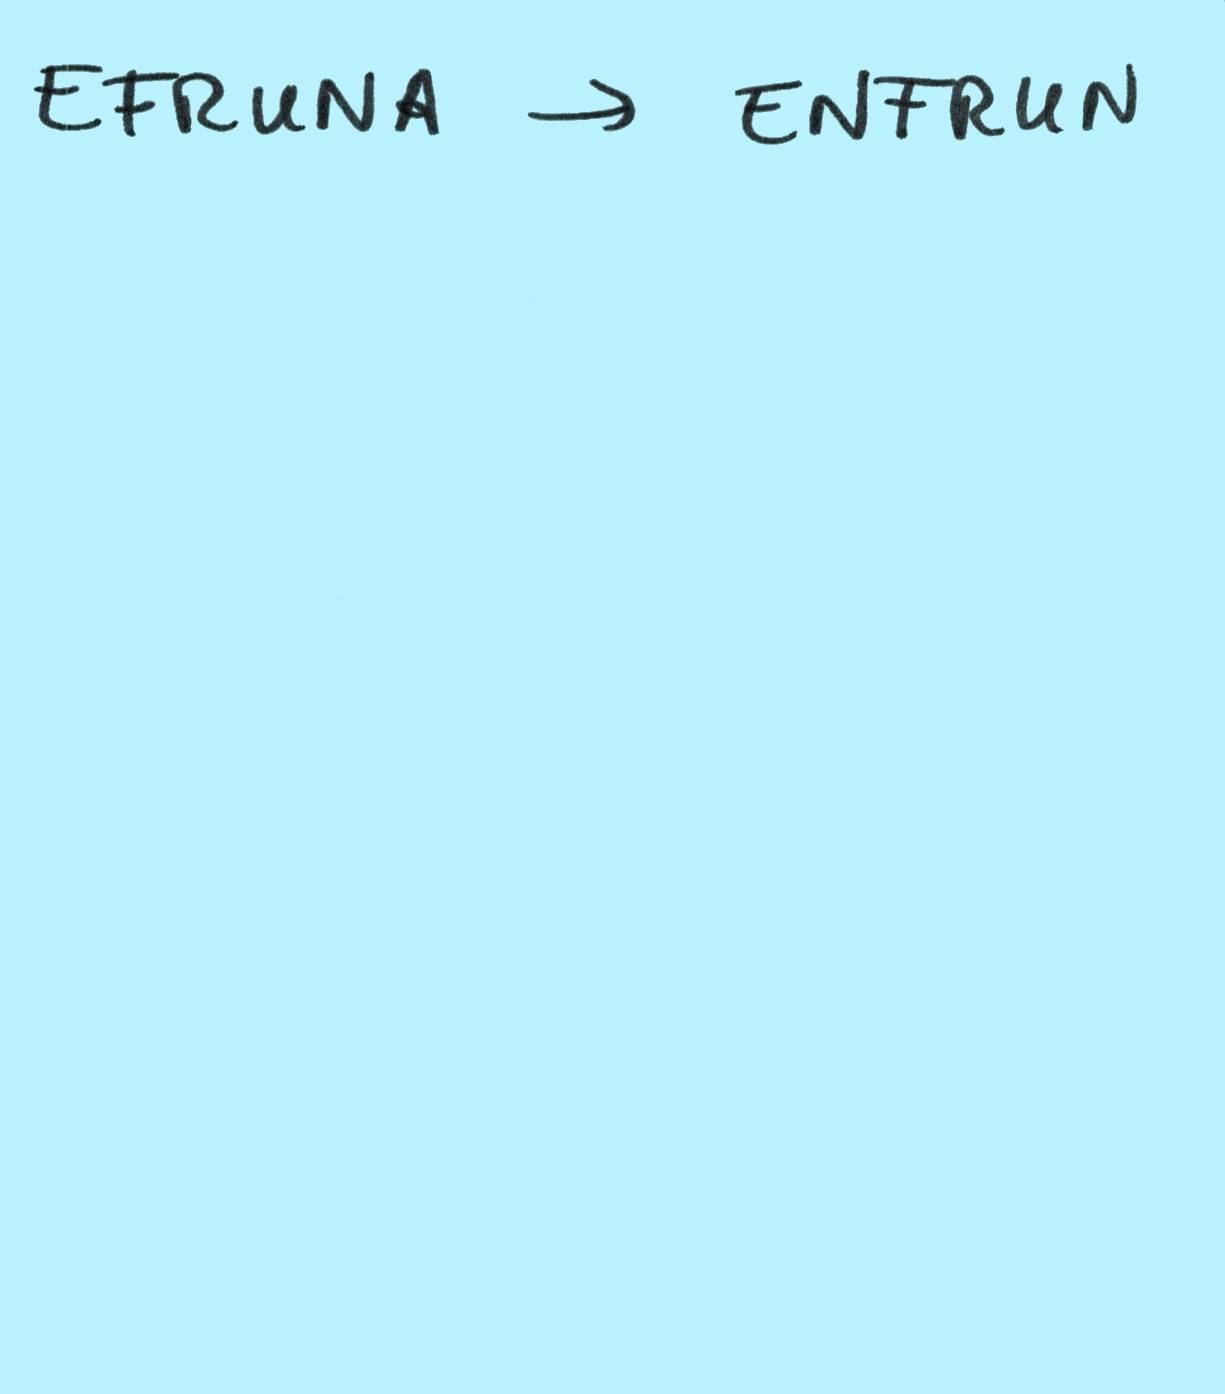 EFRUNA → ENFRUN